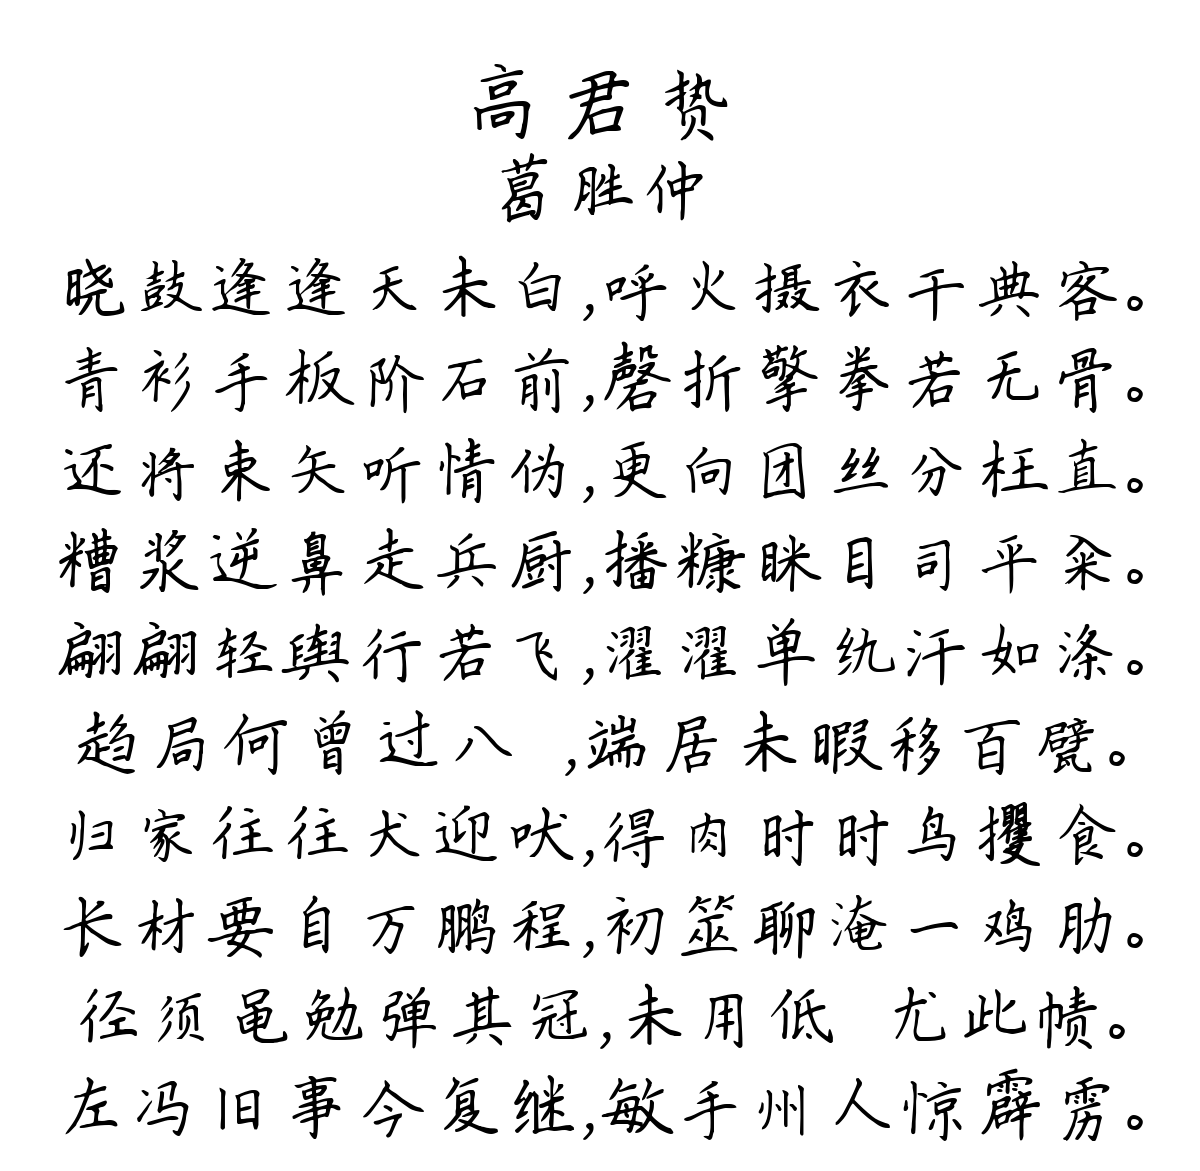 高君贽
葛胜仲
晓鼓逢逢天未白,呼火摄衣干典客。
青衫手板阶石前,磬折擎拳若无骨。
还将束矢听情伪,更向团丝分枉直。
糟浆逆鼻走兵厨,播糠眯目司平粜。
翩翩轻舆行若飞,濯濯单纨汗如涤。
趋局何曾过八 ,端居未暇移百甓。
归家往往犬迎吠,得肉时时鸟攫食。
长材要自万鹏程,初筮聊淹一鸡肋。
径须黾勉弹其冠,未用低 尤此帻。
左冯旧事今复继,敏手州人惊霹雳。